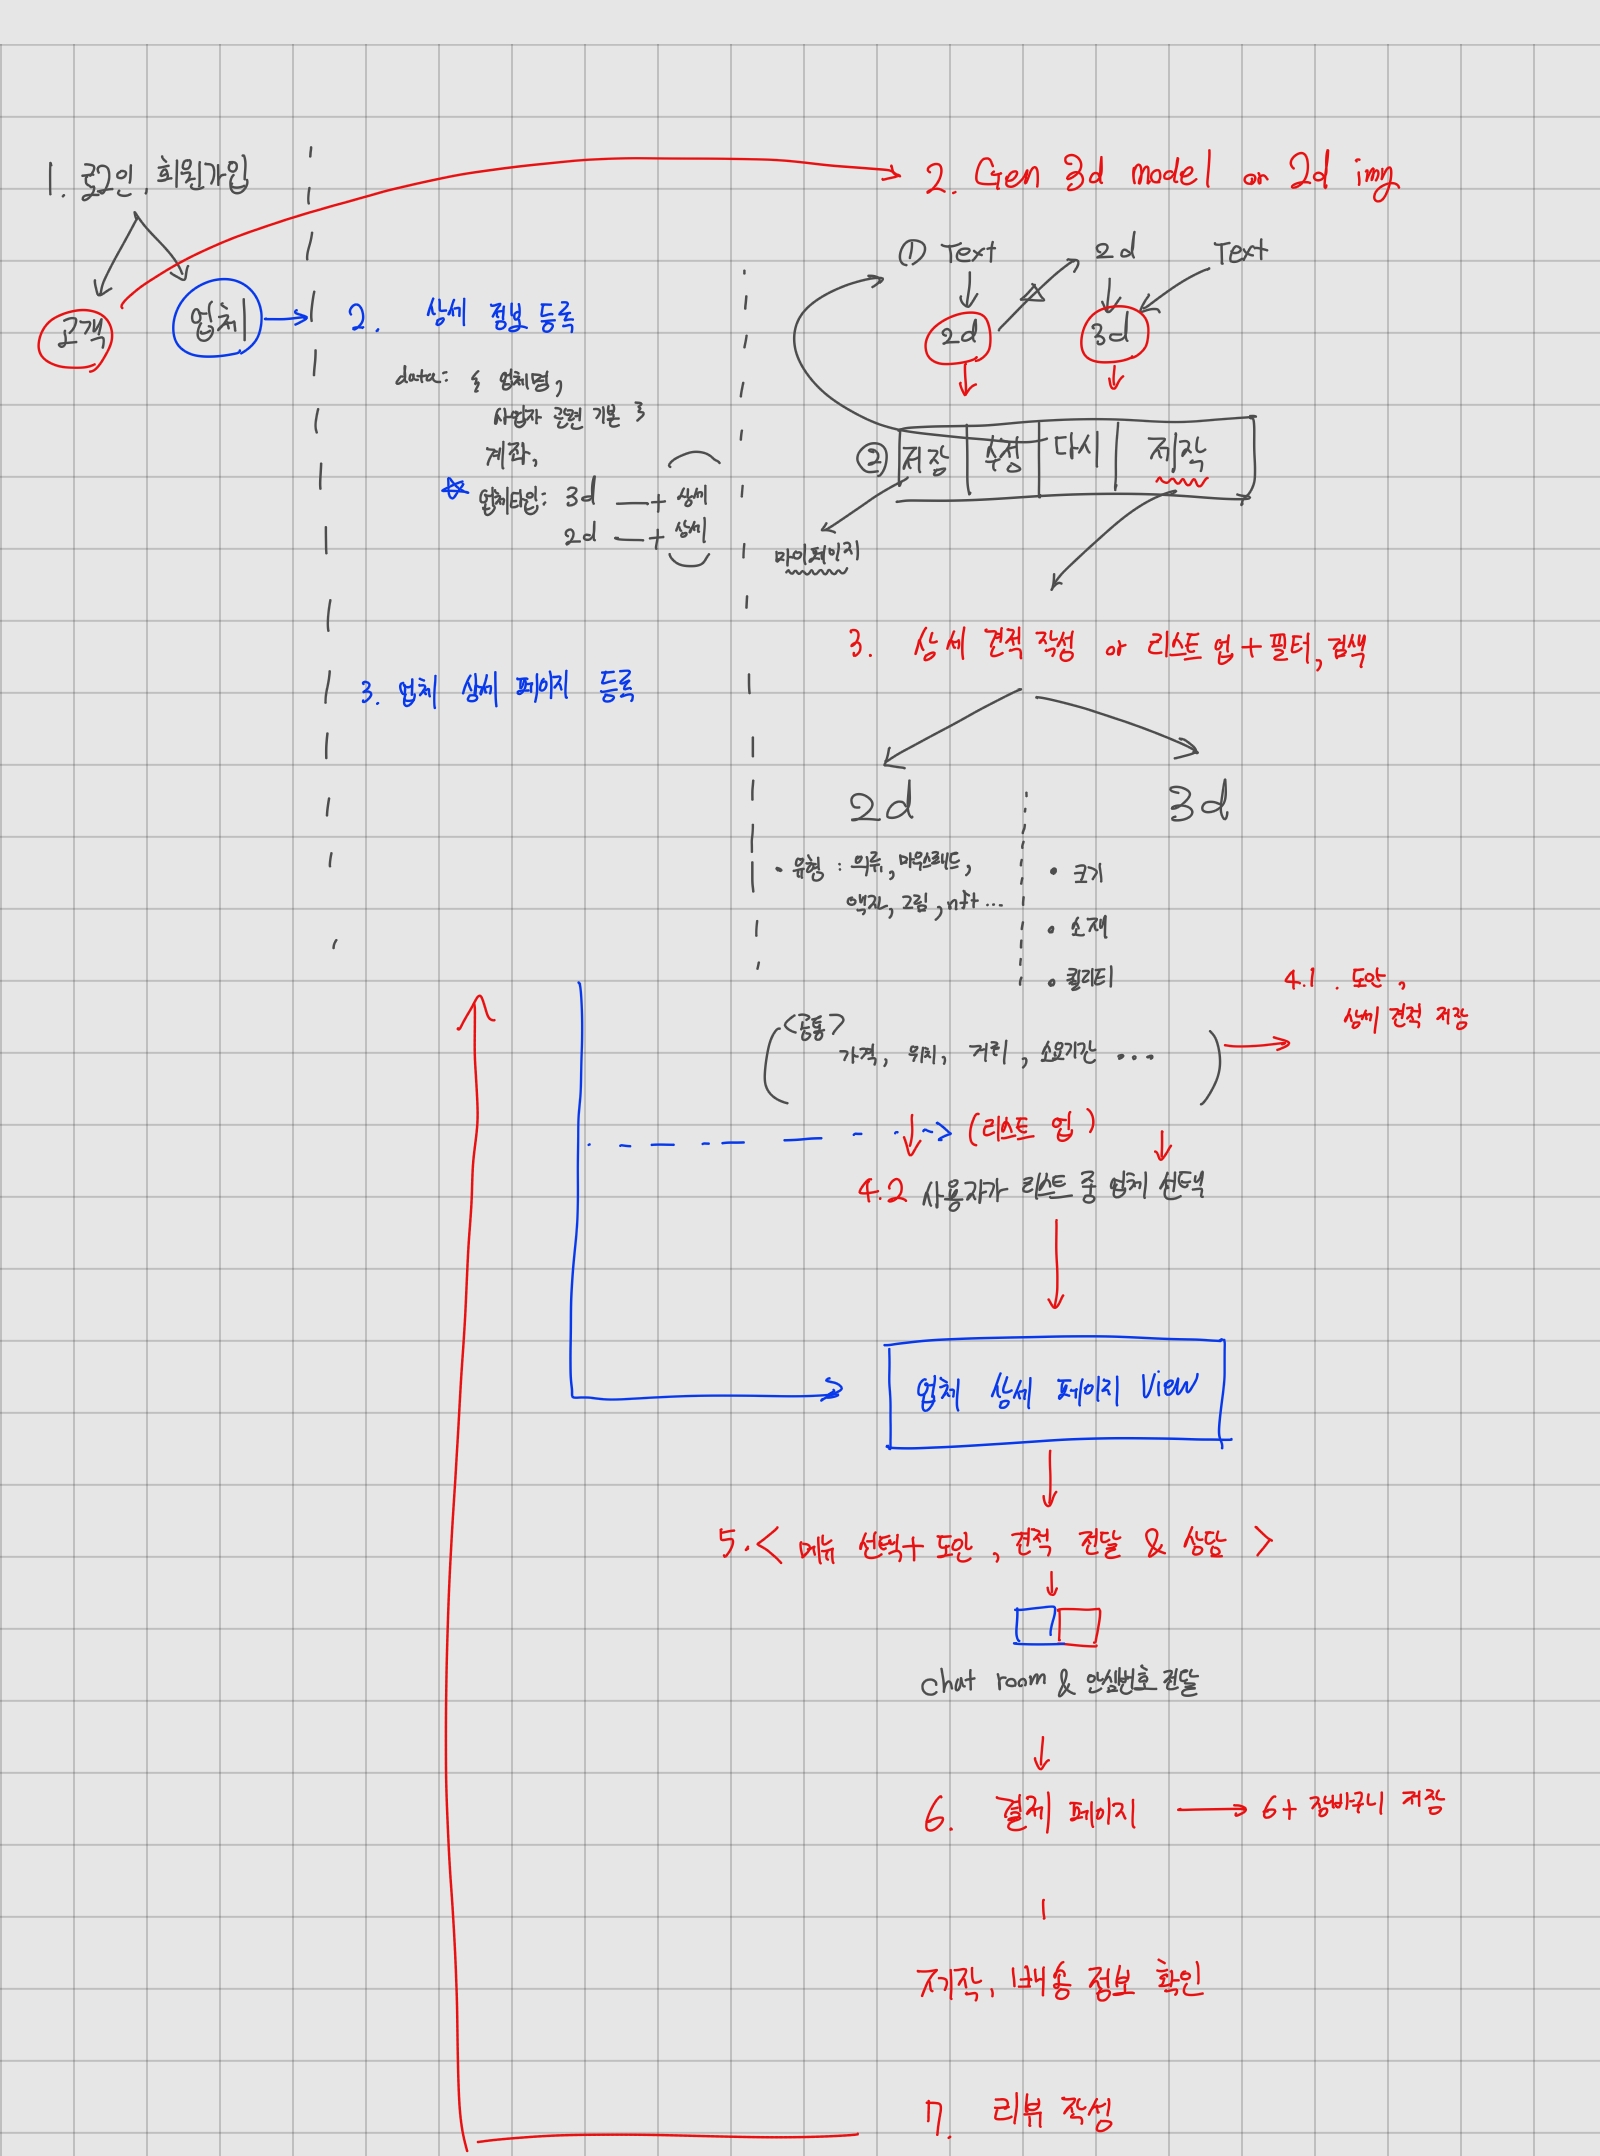 1. 로그인, 회원가입
고객
업체
2. 상세 정보 등록
data: 업체명,
사업자 관련 기본
계좌,
업체타입: 3d + 상세
2d + 상세
3. 업체 상세 페이지 등록
2. Gen 3d model or 2d img
① Text 2d Text
2d 3d
② 저장 수정 다시 제작
마이페이지
3. 상세 견적 작성 or 리스트 업 + 필터, 검색
2d 3d
• 유형 : 의류, 마우스패드,
액자, 그림, nft ...
• 크기
• 소재
• 퀄리티
4.1. 도안,
상세 견적 저장
<공통>
가격, 위치, 거리, 소요기간 ...
(리스트 업)
4.2 사용자가 리스트 중 업체 선택
업체 상세 페이지 View
5. < 메뉴 선택 + 도안, 견적 전달 & 상담 >
chat room & 안심번호 전달
6. 결제 페이지
6+ 장바구니 저장
제작, 배송 정보 확인
7. 리뷰 작성